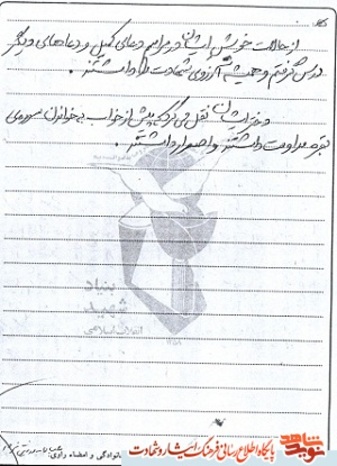 از حالات خوش ایشان در مراسم دعای کمیل و دعاهای دیگر
درس گرفتم و همیشه آرزوی شهادت را داشتند.
و دختر ایشان نقل می‌کرد که پیش از خواب به خواندن سوره‌ی
بقره مداومت داشتند و اصرار داشتند.
بنیاد
شهید
انقلاب اسلامی
خانوادگی و امضاء راوی:
شاهد
نوید
پایگاه اطلاع رسانی فرهنگ ایثار و شهادت